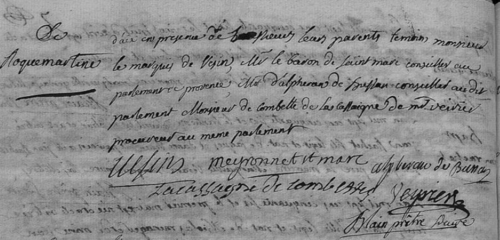 De
Roquemartine
en presence de leurs parents temoins monsieur
le marquis de Mr le baron de Saint marc conseiller au
parlement de provence Mr d'alpheran de Bussan conseiller au dit
parlement Monsieur de Combelle de la Cassaigne de mr Veirier
procureur au meme parlement
meyronnet st marc alpheran de Bussan
Lacassagne de Combelle
Veyrier
Blain prêtre